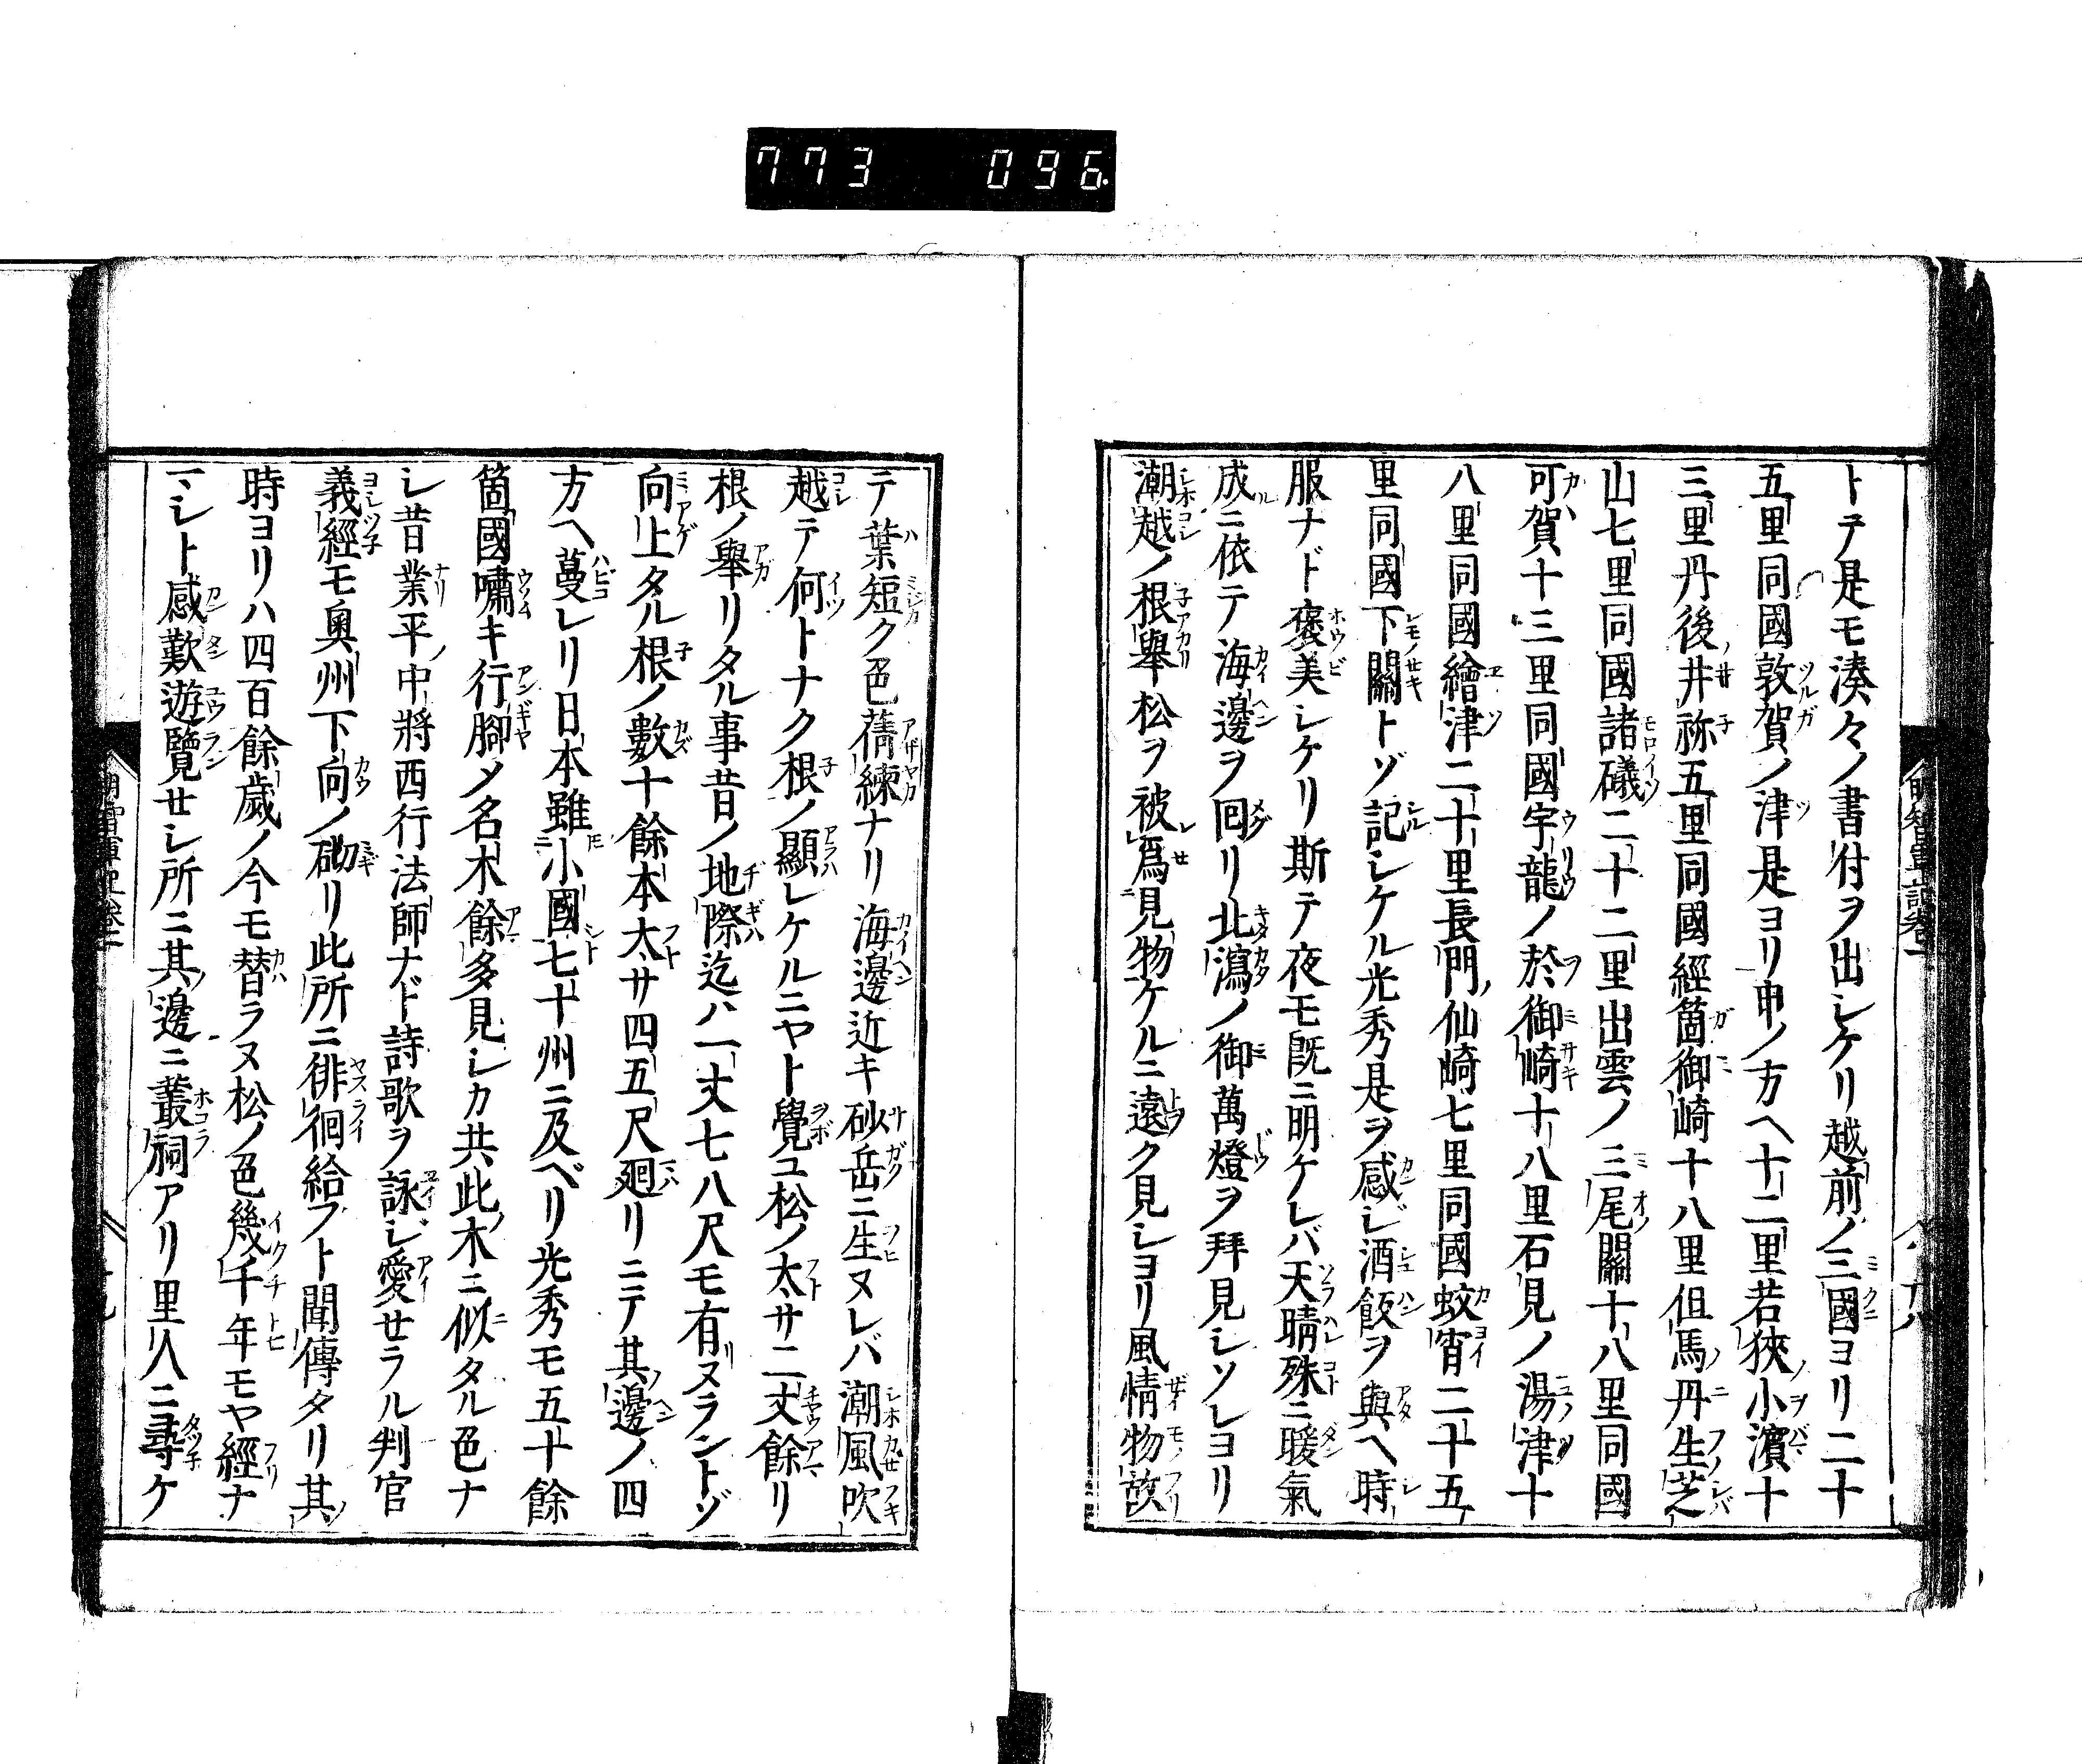 773 096
トテ是モ湊々ノ書付ヲ出シケリ越前ノ三國ヨリ二十
五里同國敦賀ノ津是ヨリ申ノ方ヘ十二里若狹小濱十
三里丹後ノ井祢五里同國經箇御崎十八里但馬ノ丹生芝
山七里同國諸礒二十二里出雲ノ三尾關十八里同國
可賀十三里同國宇龍ノ於御崎十八里石見ノ湯津十
八里同國繪津二十里長門ノ仙崎七里同國蛟宵二十五
里同國下關トゾ記シケル光秀是ヲ感ジ酒飯ヲ與ヘ時
服ナド褒美シケリ斯テ夜モ既ニ明ケレバ天晴殊ニ暖氣
成ニ依テ海邊ヲ回リ北瀉ノ御萬燈ヲ拜見シソレヨリ
潮越ノ根舉松ヲ被爲見物ケルニ遠ク見シヨリ風情物故
テ葉短ク色蒨練ナリ海邊近キ砂岳ニ生ヌレバ潮風吹
越テ何トナク根ノ顯レケルニヤト覺ユ松ノ太サ二丈餘リ
根ノ舉リタル事昔ノ地際迄ハ一丈七八尺モ有ヌラントゾ
向上タル根ノ數十餘本太サ四五尺廻リニテ其邊ノ四
方ヘ蔓レリ日本雖小國七十州ニ及ベリ光秀モ五十餘
箇國嘯キ行脚〆名木餘多見シカ共此木ニ似タル色ナ
シ昔業平ノ中將西行法師ナド詩歌ヲ詠ジ愛セラル判官
義經モ奥州下向ノ砌リ此所ニ徘徊給フト聞傳タリ其
時ヨリハ四百餘歲ノ今モ替ラヌ松ノ色幾千年モヤ經ナ
マシト感歎遊覽セシ所ニ其邊ニ叢祠アリ里人ニ尋ケ